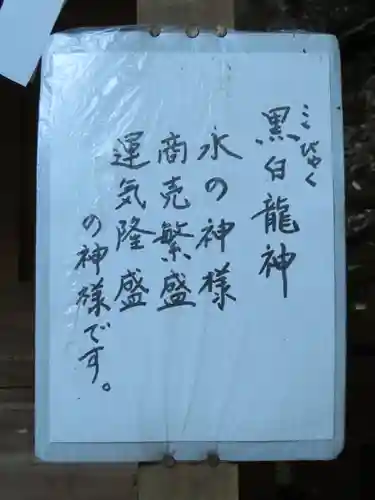 こびゃく
黒白龍神
水の神様
商売繁盛
運気隆盛
の神様です。